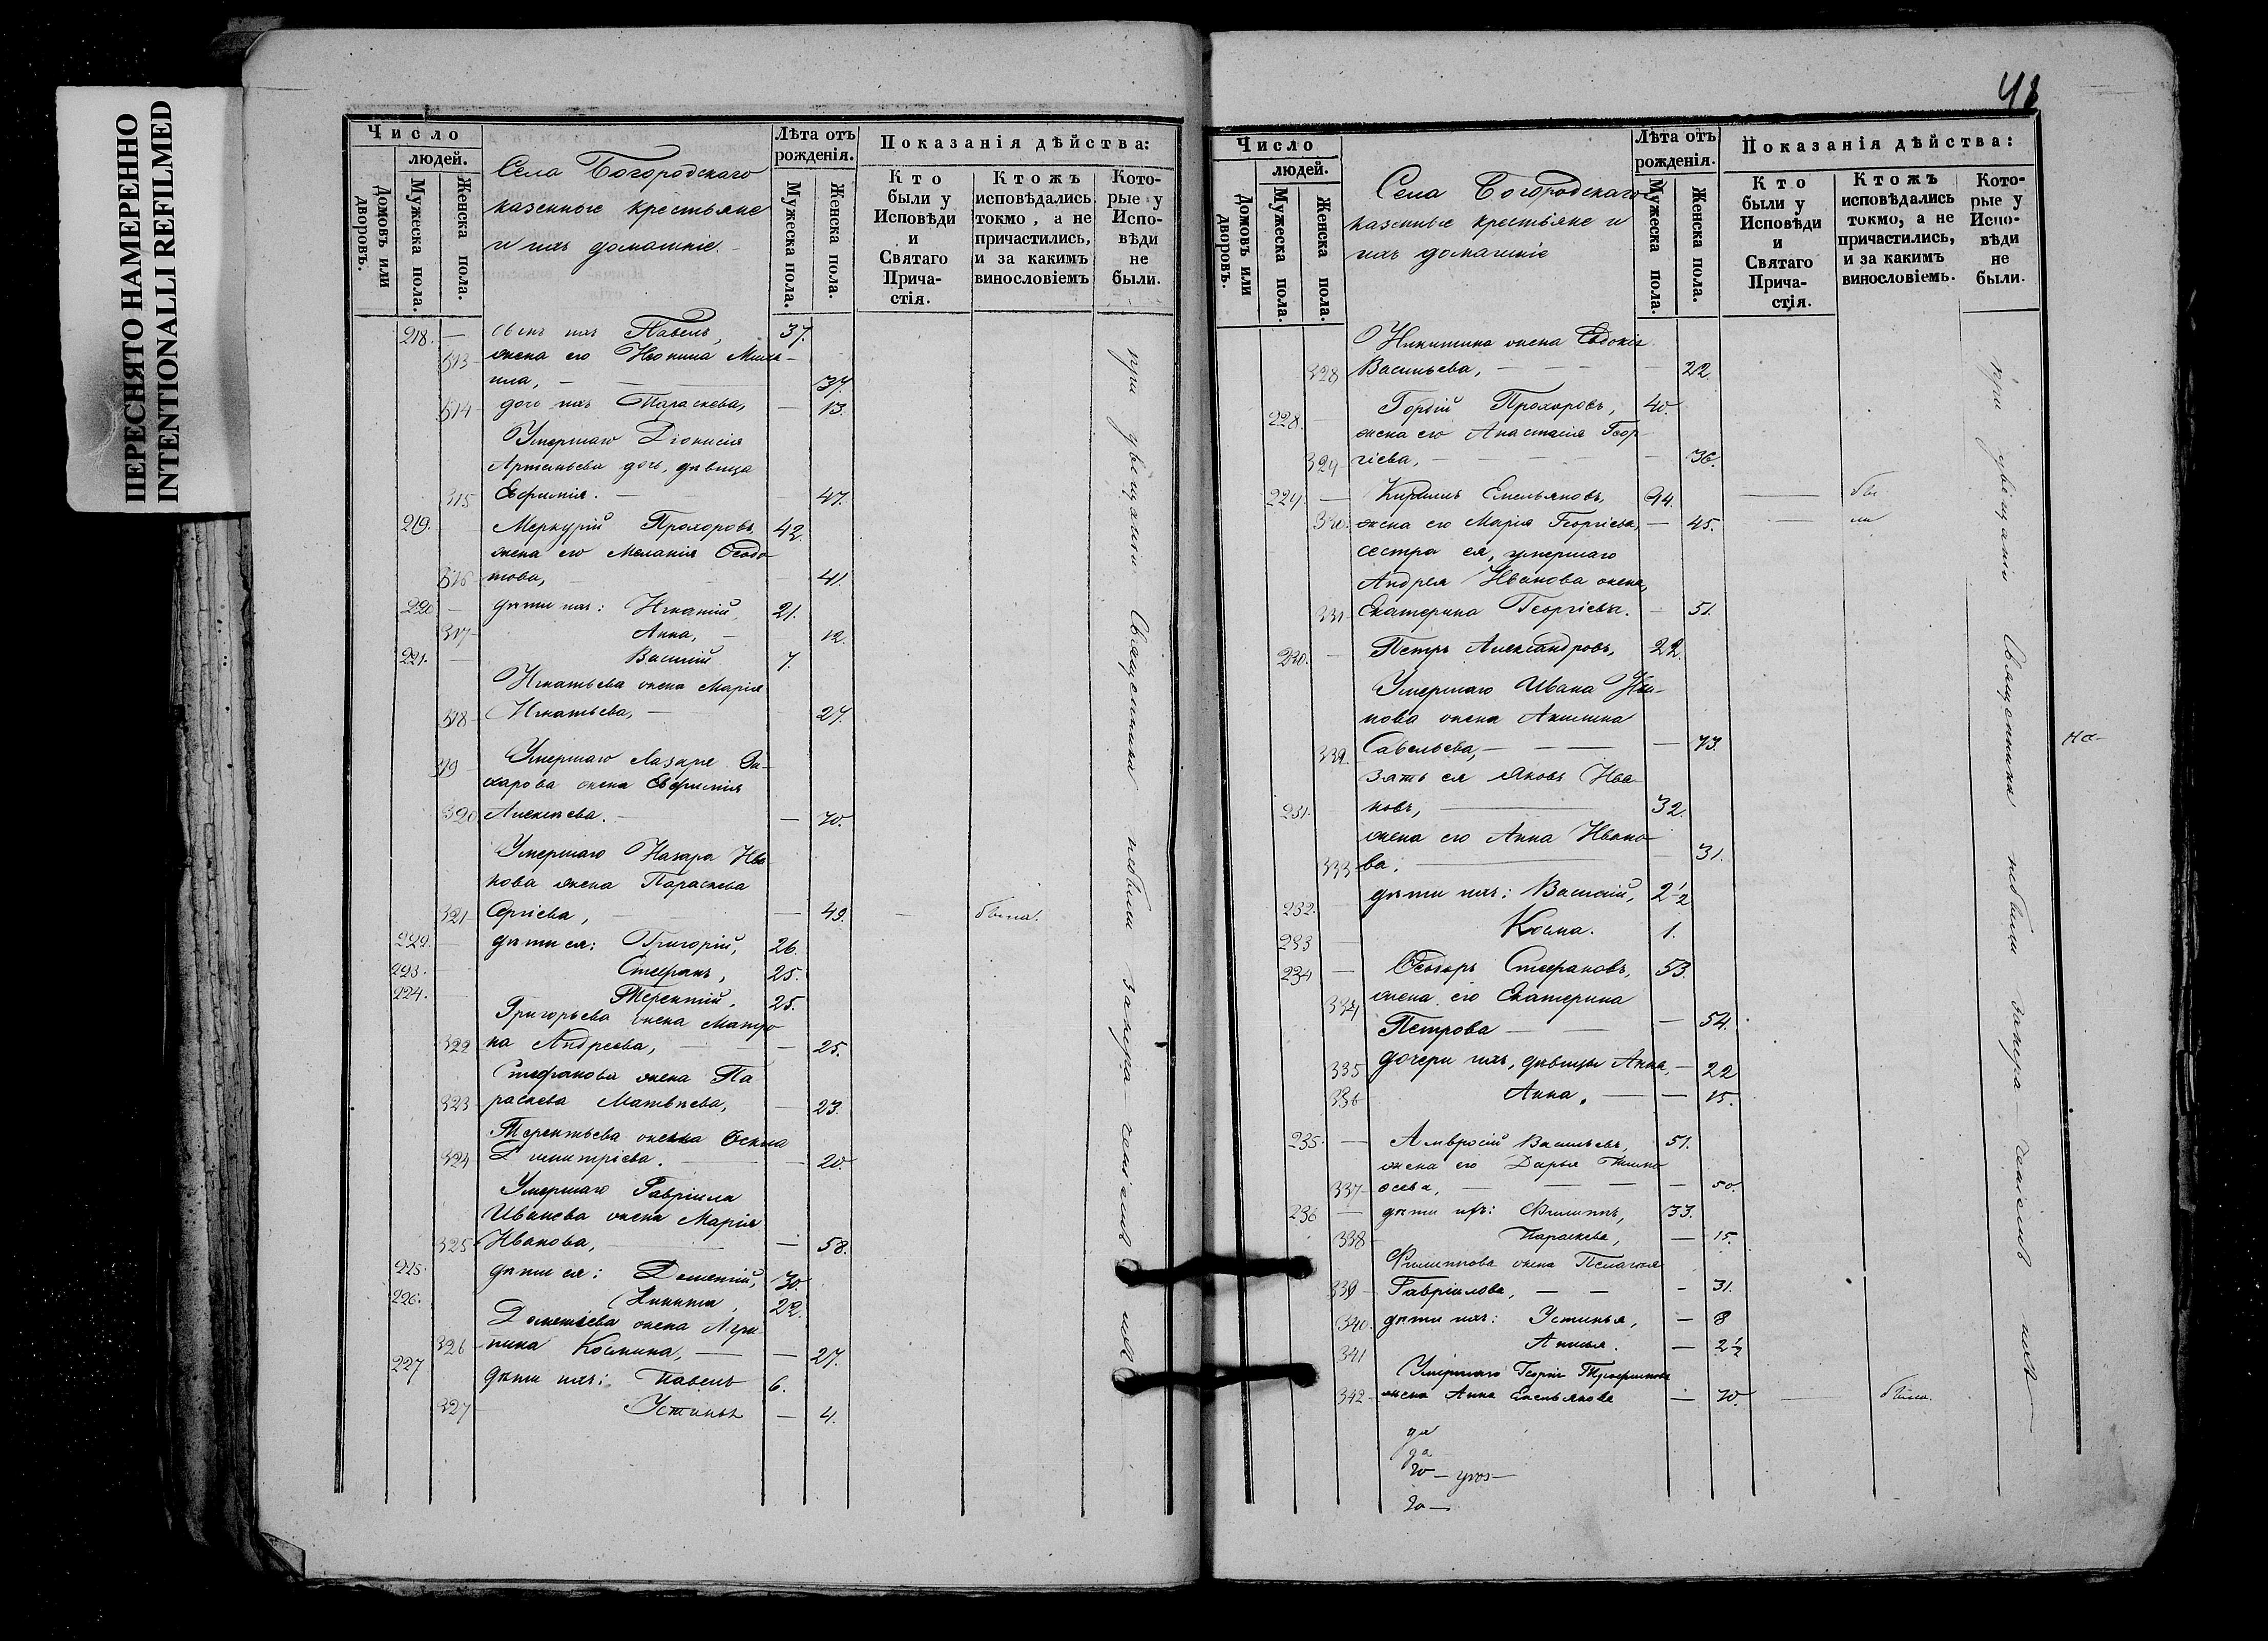 ПЕРЕСНЯТО НАМЕРЕННО
INTENTIONALLI REFILMED
Число
людей.
Домовъ или дворовъ.
Мужеска пола.
Женска пола.
Села Богородскаго
казенные крестьяне
и ихъ домашніе.
Лѣта отъ рожденія.
Мужеска пола.
Женска пола.
Показанія дѣйства:
Кто были у Исповѣди и Святаго Прича-стія.
Ктожъ исповѣдались токмо, а не причастились, и за какимъ винословіемъ
Кото-рые у Испо-вѣди не были.
218. — сынъ ихъ Павелъ, 37.
313 жена его
37.
314 дочь ихъ Параскева, — 13.
Умершаго Діонисія
Артемьева дочь, дѣвица
315 Евфимія. — 47.
219. Меркурій Прохоровъ, 42.
жена его Меланія Ѳеодо-
316 това, — 41.
220 — дѣти ихъ: Игнатій, 21.
317 Анна, — 12
221. — Василій 7.
Игнатьева жена Марія
318 Игнатьева, — 27.
319 Умершаго Лазаря За-
харова жена Евфимія
320 Алексѣева. — 70.
Умершаго Назара Ива-
нова жена Параскева
321 Сергіева, — 49. — была.
222. — дѣти ея: Григорій, 26.
223. Стефанъ, 25.
224. Терентій, 25.
Григорьева жена Матро-
322 на Андреева, — 25.
Стефанова жена Па-
323 раскева Матвѣева, — 23.
Терентьева жена
324 Димитріева. — 20.
Умершаго Гавріила
Иванова жена Марія
325 Иванова, — 58.
225. дѣти ея: Дометій, 30.
226. Никита, 22.
Дометіева жена Агри-
326 пина Космина, — 27.
227 дѣти ихъ: Павелъ 6.
327 Устинья — 4.
при увѣщаніи Священника небыли
48
Число
людей.
Домовъ или дворовъ.
Мужеска пола.
Женска пола.
Села Богородскаго
казенные крестьяне и
ихъ домашніе
Лѣта отъ рожденія.
Мужеска пола.
Женска пола.
Показанія дѣйства:
Кто были у Исповѣди и Святаго Прича-стія.
Ктожъ исповѣдались токмо, а не причастились, и за какимъ винословіемъ.
Кото-рые у Испо-вѣди не были.
Никитина жена Евдокія
328 Васильева, — 22.
228. Гордій Прохоровъ, 40.
жена его Анастасія Геор-
329 гіева, — 36.
229. — Кириллъ Емельяновъ, 44. — бы
330. жена его Марія Георгіева, — 45. — ли
сестра ея, умершаго
Андрея Иванова жена,
331 Екатерина Георгіева. — 51.
230. — Петръ Александровъ, 22.
Умершаго Ивана
нова жена Акилина
332. Савельева, — 73.
зять ея Яковъ Ива-
231. новъ, — 32.
жена его Анна Ивано-
333 ва. — 31.
232. дѣти ихъ: Василій, 2 1/2
233 Косма. 1.
234 — Ѳеодоръ Стефановъ, 53.
жена его Екатерина
334 Петрова — 54.
335 дочери ихъ, дѣвицы Анна, — 22
336 Анна, — 15.
235. — Амвросій Васильевъ, 51.
жена его Дарья Тимо-
337 ѳеева, — 50.
236 — дѣти ихъ: Филиппъ, 33.
338 Параскева, — 15.
Филиппова жена Пелагія
339 Гавріилова, — 31.
340. дѣти ихъ: Устинья, — 8
341 Анисья. — 2 1/2
Умершаго Георгія Трофимова
342 жена Анна Емельянова — 70. — была.
при увѣщаніи Священника небыли
на-